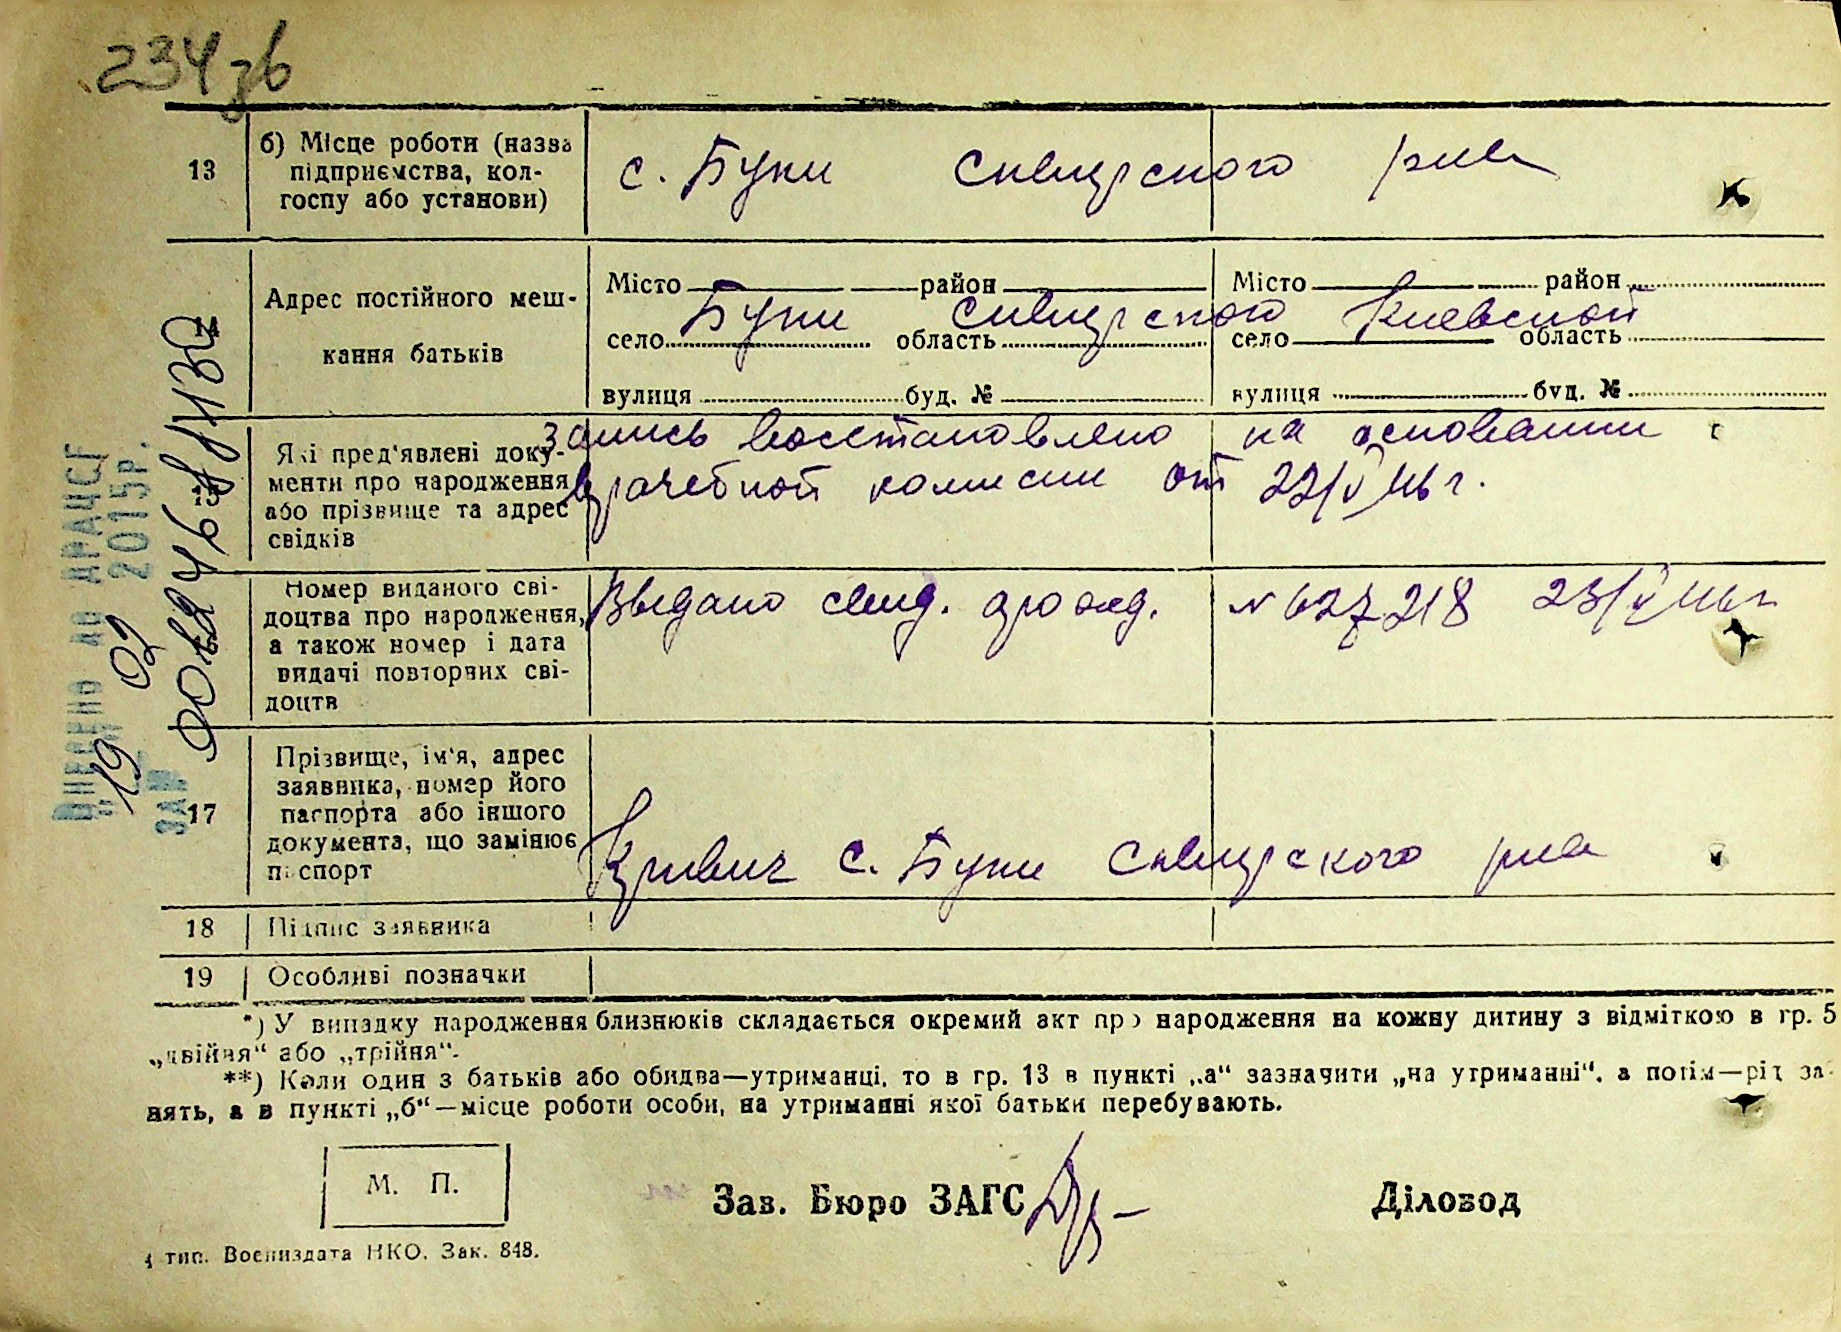 234 зв
13
б) Місце роботи (назва
підприємства, кол-
госпу або установи)
с. Буки Сквирского р-на
14
Адрес постійного меш-
кання батьків
Місто район
село Буки Сквирского область
вулиця буд. №
Місто район
село Киевской область
вулиця буд. №
15
Які пред'явлені доку-
менти про народження
або прізвище та адрес
свідків
запись восстановлено на основании
врачебной комисии от 22/V 46 г.
Номер виданого сві-
доцтва про народження,
а також номер і дата
видачі повторних сві-
доцтв
Выдано свид. о рожд. № 627218 23/V 46 г
17
Прізвище, ім'я, адрес
заявника, номер його
паспорта або іншого
документа, що замінює
паспорт
Кривич с. Буки Сквирского р-на
18
Підпис заявника
19
Особливі позначки
*) У випадку народження близнюків складається окремий акт про народження на кожну дитину з відміткою в гр. 5
„двійня“ або „трійня“.
**) Коли один з батьків або обидва—утриманці, то в гр. 13 в пункті „а“ зазначити „на утриманні“, а потім—рід за-
нять, а в пункті „б“—місце роботи особи, на утриманні якої батьки перебувають.
М. П.
Зав. Бюро ЗАГС
Діловод
тип. Воениздата НКО. Зак. 848.
ВНЕСЕНО ДО ДРАЦСГ
„19 02 2015р.
ЗА №